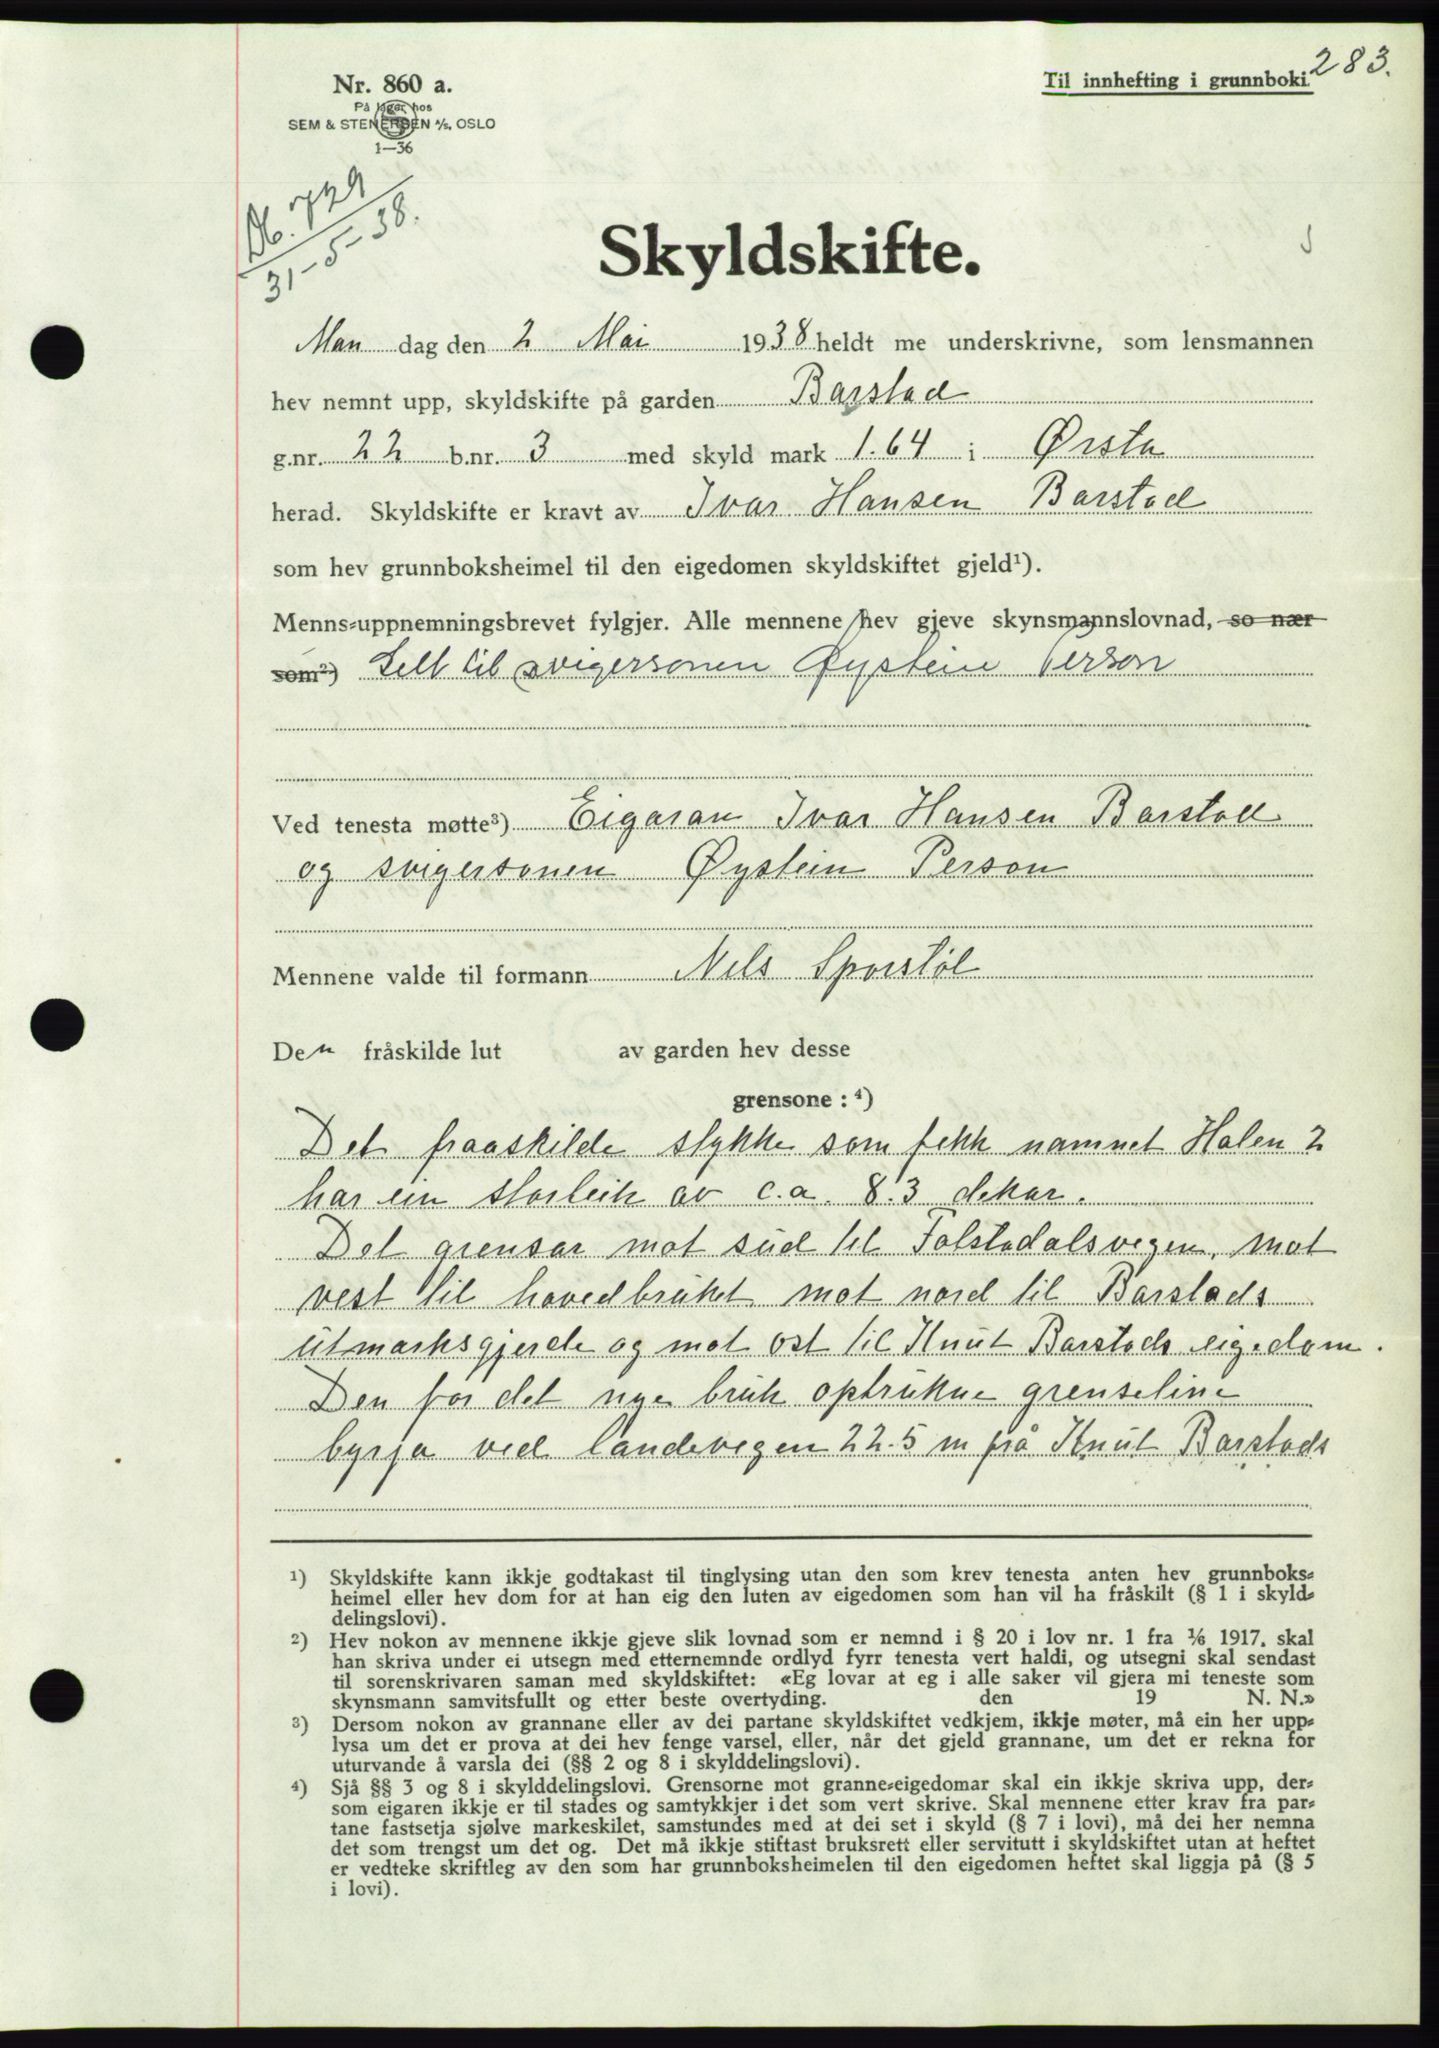 283.
Til innhefting i grunnboki.
Nr. 860 a.
På lager hos
SEM & STENERSEN A/S, OSLO
1—36
Db. 729
31-5-38.
Skyldskifte.
Man dag den 2 Mai 1938 heldt me underskrivne, som lensmannen
hev nemnt upp, skyldskifte på garden Barstad
g.nr. 22 b.nr. 3 med skyld mark 1.64 i Ørsta
herad. Skyldskifte er kravt av Ivar Hansen Barstad
som hev grunnboksheimel til den eigedomen skyldskiftet gjeld¹).
Menns-uppnemningsbrevet fylgjer. Alle mennene hev gjeve skynsmannslovnad, so nær
som²) Selt til svigersonen Øystein Person
Ved tenesta møtte³) Eigaran Ivar Hansen Barstad
og svigersonen Øystein Person
Mennene valde til formann Nils Sporstøl
Den fråskilde lut av garden hev desse
grensone : ⁴)
Det fraaskilde stykke som fekk namnet Halen 2
har ein storleik av c.a. 8.3 dekar.
Det grensar mot süd til Folstadalsvegen, mot
vest til hovedbrüket, mot nord til Barstads
ütmarksgjerde og mot ost til Knüt Barstads eigedom.
Den for det nye brük optrükne grenseline
byrja ved landevegen 22.5 m frå Knüt Barstads
¹) Skyldskifte kann ikkje godtakast til tinglysing utan den som krev tenesta anten hev grunnboks-
heimel eller hev dom for at han eig den luten av eigedomen som han vil ha fråskilt (§ 1 i skyld-
delingslovi).
²) Hev nokon av mennene ikkje gjeve slik lovnad som er nemnd i § 20 i lov nr. 1 fra ¹/₆ 1917, skal
han skriva under ei utsegn med etternemnde ordlyd fyrr tenesta vert haldi, og utsegni skal sendast
til sorenskrivaren saman med skyldskiftet: «Eg lovar at eg i alle saker vil gjera mi teneste som
skynsmann samvitsfullt og etter beste overtyding. den 19 N. N.»
³) Dersom nokon av grannane eller av dei partane skyldskiftet vedkjem, ikkje møter, må ein her upp-
lysa um det er prova at dei hev fenge varsel, eller, når det gjeld grannane, um det er rekna for
uturvande å varsla dei (§§ 2 og 8 i skylddelingslovi).
⁴) Sjå §§ 3 og 8 i skylddelingslovi. Grensorne mot granne-eigedomar skal ein ikkje skriva upp, der-
som eigaren ikkje er til stades og samtykkjer i det som vert skrive. Skal mennene etter krav fra par-
tane fastsetja sjølve markeskilet, samstundes med at dei set i skyld (§ 7 i lovi), må dei her nemna
det som trengst um det og. Det må ikkje stiftast bruksrett eller servitutt i skyldskiftet utan at heftet
er vedteke skriftleg av den som har grunnboksheimelen til den eigedomen heftet skal liggja på (§ 5
i lovi).